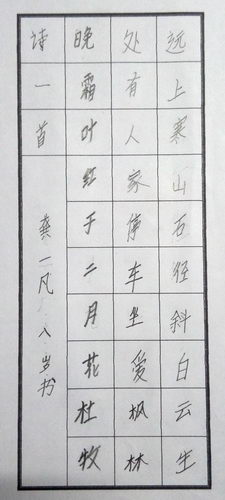 远上寒山石径斜白云生
处有人家停车坐爱枫林
晚霜叶红于二月花杜牧
诗一首 龚一凡 八岁书